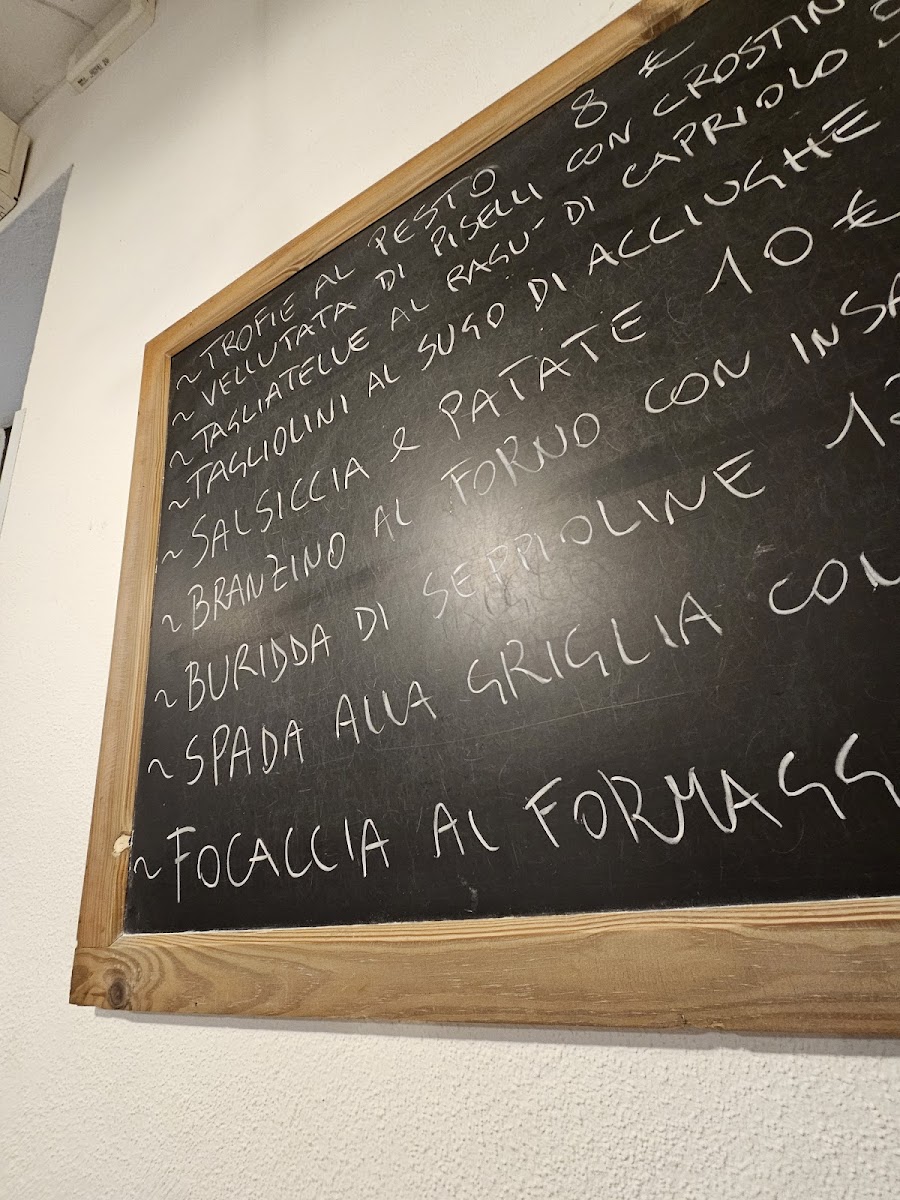 ~ TROFIE AL PESTO 8 €
~ VELLUTATA DI PISELLI CON CROSTIN
~ TAGLIATELLE AL RAGU' DI CAPRIOLO
~ TAGLIOLINI AL SUGO DI ACCIUGHE
~ SALSICCIA e PATATE 10 €
~ BRANZINO AL FORNO CON INSA
~ BURIDDA DI SEPPIOLINE
~ SPADA ALLA GRIGLIA CON
~ FOCACCIA AL FORMAGG